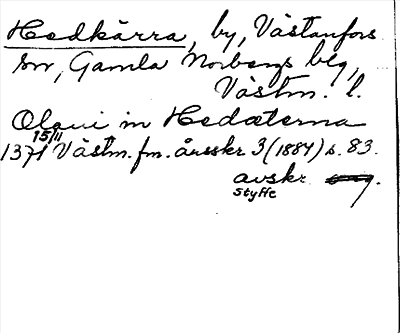 Hedkärra, by, Västanfors
sn, Gamla Norbergs blg,
Västm. l.
Olaui in Hedæterna
15/11
1371 Västm. fm. årsskr 3 (1884) s. 83.
avskr.
Styffe